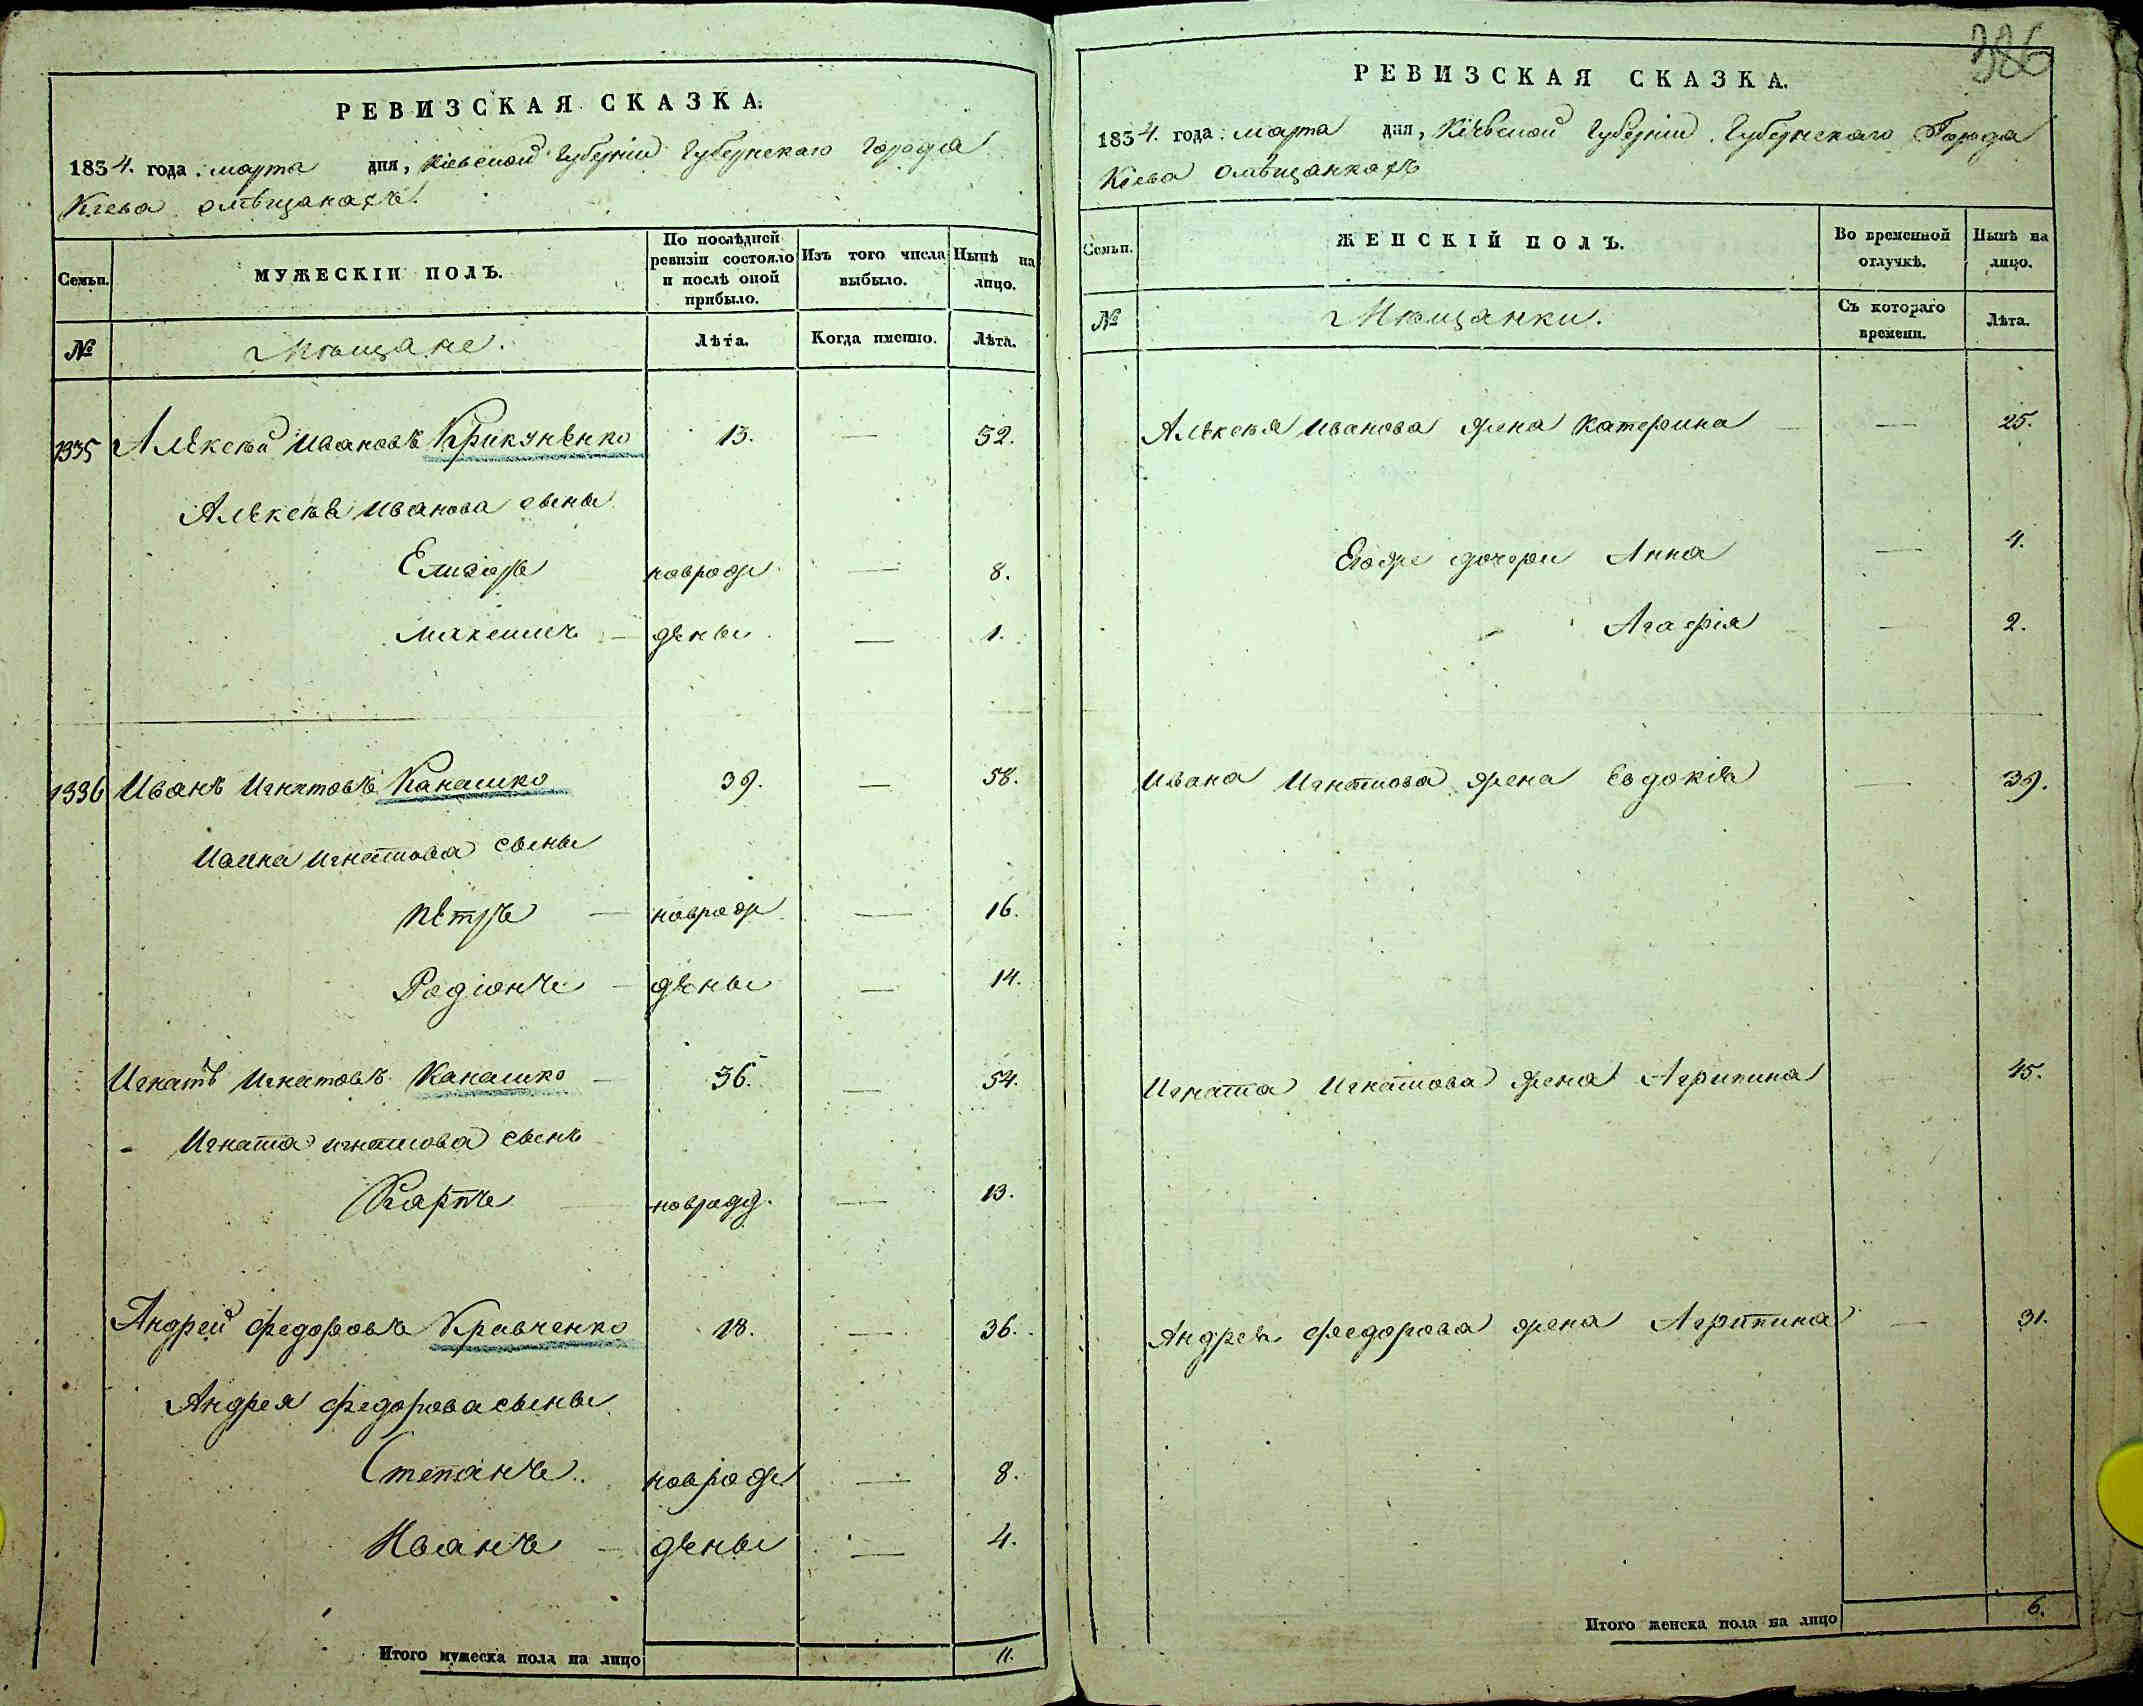 РЕВИЗСКАЯ СКАЗКА.
1834. года марта дня, Кіевской Губерніи Губернскаго Города
Кіева омѣщанахъ.
Семьи.
МУЖЕСКІЙ ПОЛЪ.
По послѣдней ревизіи состояло и послѣ оной прибыло.
Изъ того числа выбыло.
Нынѣ на лицо.
№
Мѣщане.
Лѣта.
Когда именно.
Лѣта.
1335 Алексѣй Ивановъ Крикуненко 13. — 32.
Алексѣя Иванова сыны
Елизаръ новрож — 8.
Максимъ — дены — 1.
1336 Иванъ Игнатовъ Канашко 39. — 58.
Ивана Игнатова сыны
Петръ — новрож — 16.
Родіонъ — дены — 14.
Игнатъ Игнатовъ Канашко — 36. — 54.
Игната Игнатова сынъ
Карпъ — новрожд. — 13.
Андрей Федоровъ Кравченко 18. — 36.
Андрея Федорова сыны
Степанъ новрож — 8.
Иванъ — дены — 4.
Итого мужеска пола на лицо 11.
386
РЕВИЗСКАЯ СКАЗКА.
1834. года марта дня, Кіевской Губерніи Губернскаго Города
Кіева омѣщанкахъ
Семьи.
ЖЕНСКІЙ ПОЛЪ.
Во временной отлучкѣ.
Нынѣ на лицо.
№
Мѣщанки.
Съ котораго времени.
Лѣта.
Алексѣя Иванова жена Катерина — — 25.
Егоже дочери Анна — 4.
Агафія — — 2.
Ивана Игнатова жена Евдокія — 39.
Игната Игнатова жена Агрипина 45.
Андрея Федорова жена Агрипина — 31.
Итого женска пола на лицо 6.